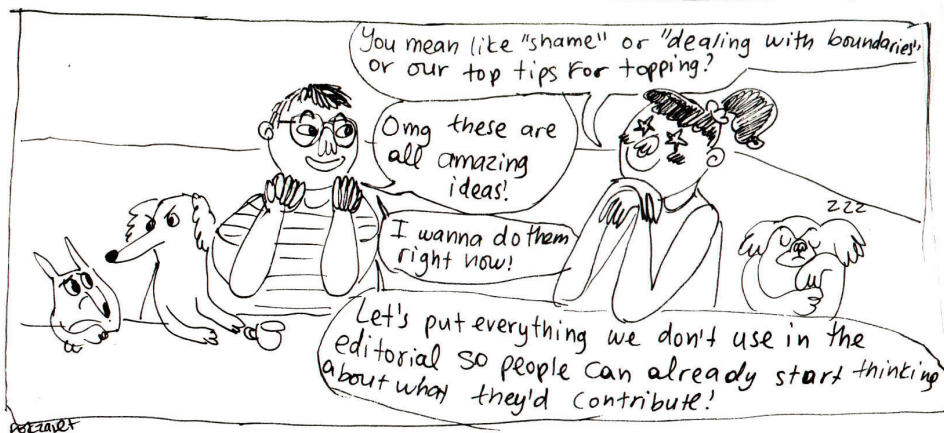 You mean like "shame" or "dealing with boundaries"
or our top tips for topping?
Omg these are
all amazing
ideas!
I wanna do them
right now!
zzz
Let's put everything we don't use in the
editorial so people can already start thinking
about what they'd contribute!